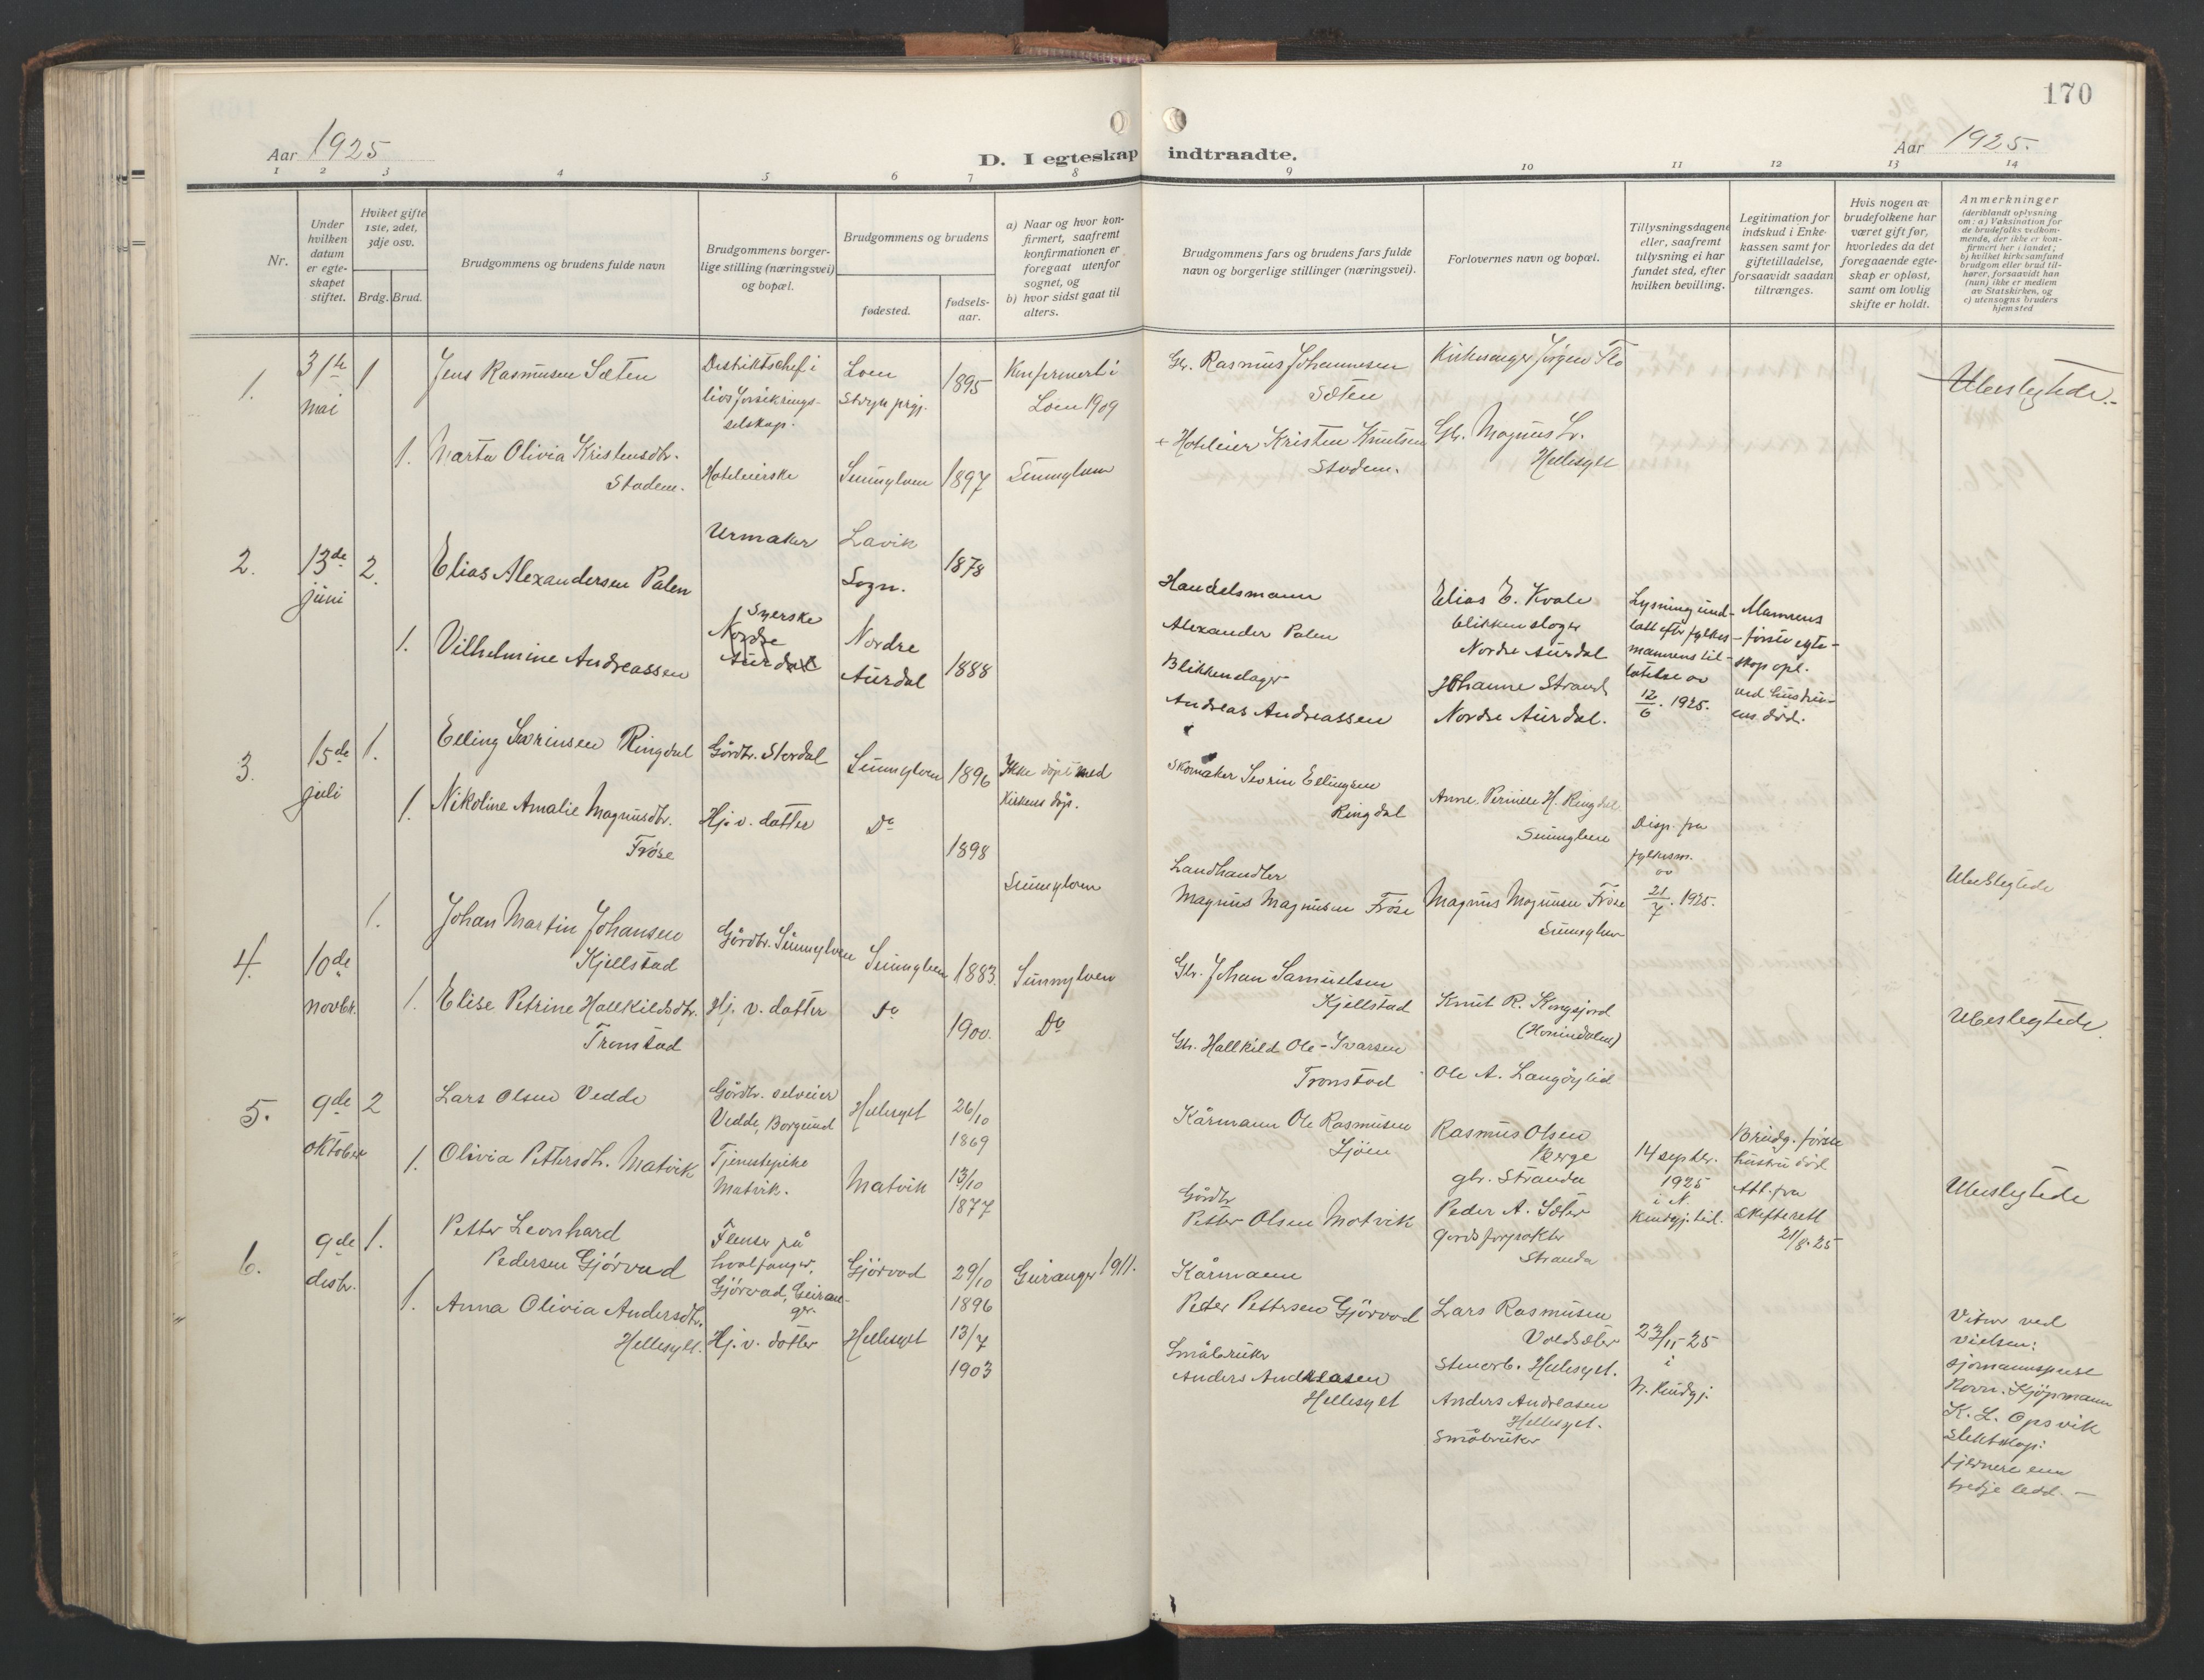 170
Aar 1925
D. I egteskap indtraadte.
Aar 1925.
1 2 3 4 5 6 7 8 9 10 11 12 13 14
Nr.
Under hvilken datum er egte-skapet stiftet.
Hviket gifte 1ste, 2det, 3dje osv.
Brdg. Brud.
Brudgommens og brudens fulde navn
Brudgommens borger-lige stilling (næringsvei) og bopæl.
Brudgommens og brudens
fødested.
fødsels-aar.
a) Naar og hvor kon-
firmert, saafremt
konfirmationen er
foregaat utenfor
sognet, og
b) hvor sidst gaat til
alters.
Brudgommens fars og brudens fars fulde
navn og borgerlige stillinger (næringsvei).
Forlovernes navn og bopæl.
Tillysningsdagene
eller, saafremt
tillysning ei har
fundet sted, efter
hvilken bevilling.
Legitimation for
indskud i Enke-
kassen samt for
giftetilladelse,
forsaavidt saadan
tiltrænges.
Hvis nogen av
brudefolkene har
været gift før,
hvorledes da det
foregaaende egte-
skap er opløst,
samt om lovlig
skifte er holdt.
Anmerkninger
(deriblandt oplysning
om: a) Vaksination for
de brudefolks vedkom-
mende, der ikke er kon-
firmert her i landet;
b) hvilket kirkesamfund
brudgom eller brud til-
hører, forsaavidt han
(hun) ikke er medlem
av Statskirken, og
c) utensogns bruders
hjemsted
1.
mai
1
Jens Rasmusen Sæten
Distriktschef i
livsforsikrings-
selskap.
Loen
Stryn prgj.
1895
Konfirmert i
Loen 1909
Gbr. Rasmus Johannesen
Sæten
Kirkesanger Jørgen Flo
Ubeslegtede.-
1.
Marta Olivia Kristensdtr.
Stadem.
Hoteleierske
Sunnylven
1897
Sunnylven
+ Hoteleier Kristen Knutsen
Stadem.
Gbr. Magnus Lr.
Hellesylt
2.
13de
juni
2.
Elias Alexandersen Palen
Urmaker
Lavik
Sogn.
1878
Handelsmann
Alexander Palen
Elias E. Kvale
blikkenslager
Nordre Aurdal
Lysning und-
latt efter fylkes-
mannens til-
latelse av
12/6. 1925.
Mannens
første egte-
skap opl.
ved hustru-
ens død.
1.
Vilhelmine Andreassen
Syerske
Nordre
Aurdal
Nordre
Aurdal
1888
Blikkenslager
Andreas Andreassen
Johanne Strand
Nordre Aurdal.
3.
15de
juli
1.
Elling Sevrinsen Ringdal
Gårdbr. Stordal
Sunnylven
1896
Ikke døpt med
Kirkens dåp.
Skomaker Sevrin Ellingsen
Ringdal
Anne Pernille H. Ringdal
Sunnylven
Disp. fra
fylkesm.
av
21/7. 1925.
1.
Nikoline Amalie Magnusdtr.
Frøse
Hj. v. datter
Do
1898
Sunnylven
Landhandler
Magnus Magnusen Frøse
Magnus Magnusen Frøse
Sunnylven
Ubeslegtede
4.
10de
novbr.
1.
Johan Martin Johansen
Kjellstad
Gårdbr. Sunnylven
Sunnylven
1883.
Sunnylven
Gbr. Johan Samuelsen
Kjellstad
Knut R. Kongsjord
(Hornindalen)
Ubeslegtede.
1.
Elise Petrine Hallkildsdtr.
Tronstad
Hj. v. datter
Do
1900.
Do
Gbr. Hallkild Ole-Ivarsen
Tronstad
Ole A. Langøylid
5.
9de
oktober
2
Lars Olsen Vedde
Gårdbr. selveier
Vedde, Borgund
Hellesylt
26/10
1869
Kårmann Ole Rasmusen
Sjøen
Rasmus Olsen
Berge
gbr. Stranda
14 septbr.
1925
i N.
Kundgj. tid.
Brudg. første
hustru død
Att. fra
skifterett
21/8. 25
1.
Olivia Pettersdtr. Matvik
Tjenestepike
Matvik.
Matvik
13/10
1877
Gårdbr
Petter Olsen Matvik
Peder A. Sæter
gardsforpakter
Stranda
Ubeslegtede
6.
9de
desbr.
1.
Petter Leonhard
Pedersen Gjørvad
Flenser på
hvalfanger,
Gjørvad, Geiran-
ger.
Gjørvad
29/10
1896
Geiranger 1911.
Kårmann
Peder Pettersen Gjørvad
Lars Rasmusen
Voldsæter
stenarb. Hellesylt.
23/11 25
i
N. Kundgj.
1.
Anna Olivia Andersdtr.
Hellesylt.
Hj. v. datter
Hellesylt
13/7
1903
Småbruker
Anders Andreasen
Hellesylt
Anders Andreasen
Hellesylt.
Småbruker
ved
vielsen:
Kjøpmann
K. L. Opsvik
Slektskap:
fjernere enn
tredje ledd. -